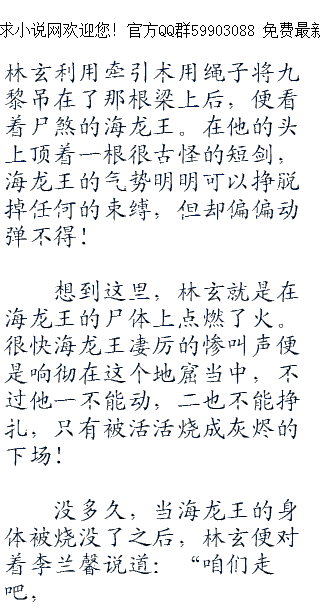 求小说网欢迎您！官方QQ群59903088 免费最新
林玄利用牵引术用绳子将九
黎吊在了那根梁上后，便看
着尸煞的海龙王。在他的头
上顶着一根很古怪的短剑，
海龙王的气势明明可以挣脱
掉任何的束缚，但却偏偏动
弹不得！
想到这里，林玄就是在
海龙王的尸体上点燃了火。
很快海龙王凄厉的惨叫声便
是响彻在这个地窟当中，不
过他一不能动，二也不能挣
扎，只有被活活烧成灰烬的
下场！
没多久，当海龙王的身
体被烧没了之后，林玄便对
着李兰馨说道：“咱们走
吧，